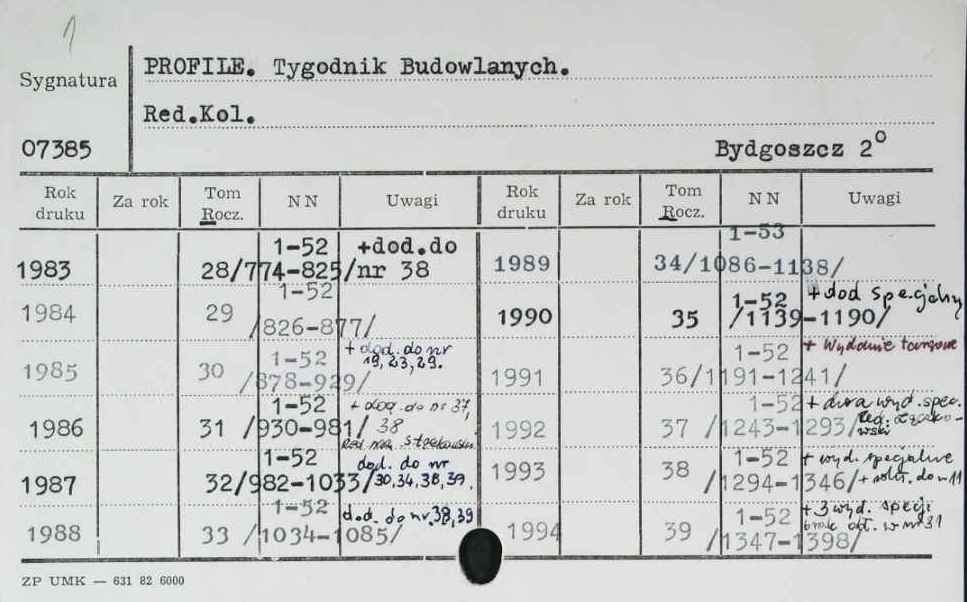 1
Sygnatura
PROFILE. Tygodnik Budowlanych.
Red.Kol.
07385
Bydgoszcz 2°
Rok druku Za rok Tom Rocz. NN Uwagi Rok druku Za rok Tom Rocz. NN Uwagi
1983 28 1-52 /774-825/ +dod.do nr 38
1984 29 1-52 /826-877/
1985 30 1-52 /878-929/ + dod. do nr 19, 23, 29.
1986 31 1-52 /930-981/ + dod. do nr 37, 38
1987 32 1-52 /982-1033/ dod. do nr 30, 34, 38, 39.
1988 33 1-52 /1034-1085/ dod. do nr. 38, 39
1989 34 1-53 /1086-1138/
1990 35 1-52 /1139-1190/ + dod specjalny
1991 36 1-52 /1191-1241/ + Wydanie targowe
1992 37 1-52 /1243-1293/ + dwa wyd. spec. Red.
1993 38 1-52 /1294-1346/ + wyd. specjalne do n 11
1994 39 1-52 /1347-1398/ + 3 wyd. specj brak w nr 31
ZP UMK — 631 82 6000